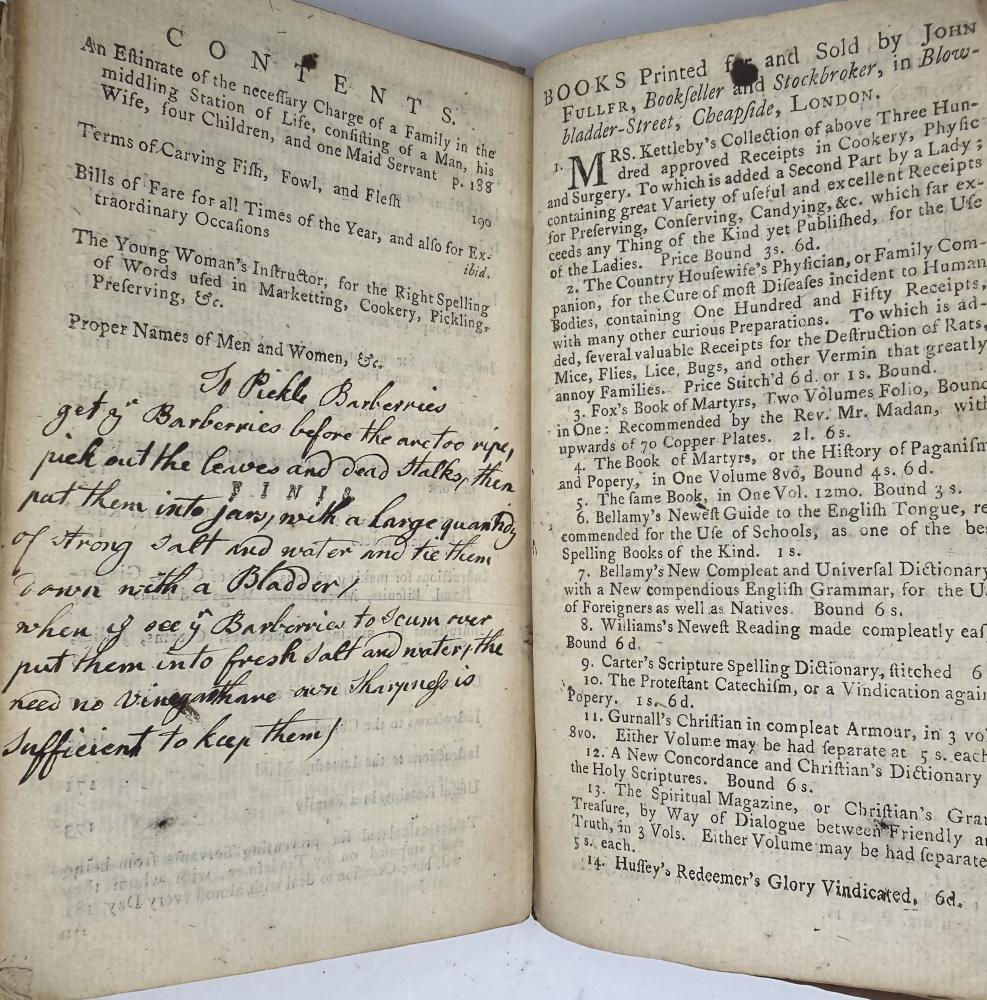 CONTENTS.
An Eſtimate of the neceſſary Charge of a Family in the
middling Station of Life, conſiſting of a Man, his
Wife, four Children, and one Maid Servant p. 188
Terms of Carving Fiſh, Fowl, and Fleſh 190
Bills of Fare for all Times of the Year, and alſo for Ex-
traordinary Occaſions ibid.
The Young Woman's Inſtructor, for the Right Spelling
of Words uſed in Marketting, Cookery, Pickling,
Preſerving, &c.
Proper Names of Men and Women, &c.
To Pickle Barberries
get yͤ Barberries before the are too ripe,
pick out the leaves and dead Stalks, then
FINIS
put them into Jars, with a large quantidy
of strong Salt and water and tie them
down with a Bladder,
when y see yͤ Barberries to Scum over
put them into fresh Salt and water, the
need no Vinegar thare own Sharpneſs is
Sufficient to keep them
BOOKS Printed for and Sold by JOHN
FULLER, Bookſeller and Stockbroker, in Blow-
bladder-Street, Cheapſide, LONDON.
1. MRS. Kettleby's Collection of above Three Hun-
dred approved Receipts in Cookery, Phyſic
and Surgery. To which is added a Second Part by a Lady;
containing great Variety of uſeful and excellent Receipts
for Preſerving, Conſerving, Candying, &c. which far ex-
ceeds any Thing of the Kind yet Publiſhed, for the Uſe
of the Ladies. Price Bound 3s. 6d.
2. The Country Houſewife's Phyſician, or Family Com-
panion, for the Cure of moſt Diſeaſes incident to Human
Bodies, containing One Hundred and Fifty Receipts,
with many other curious Preparations. To which is ad-
ded, ſeveral valuable Receipts for the Deſtruction of Rats,
Mice, Flies, Lice, Bugs, and other Vermin that greatly
annoy Families. Price Stitch'd 6d. or 1s. Bound.
3. Fox's Book of Martyrs, Two Volumes Folio, Bound
in One: Recommended by the Rev. Mr. Madan, with
upwards of 70 Copper Plates. 2l. 6s.
4. The Book of Martyrs, or the Hiſtory of Paganiſm
and Popery, in One Volume 8vo, Bound 4s. 6d.
5. The ſame Book, in One Vol. 12mo. Bound 3s.
6. Bellamy's Neweſt Guide to the Engliſh Tongue, re
commended for the Uſe of Schools, as one of the bes
Spelling Books of the Kind. 1s.
7. Bellamy's New Compleat and Univerſal Dictionary
with a New compendious Engliſh Grammar, for the U
of Foreigners as well as Natives. Bound 6s.
8. Williams's Neweſt Reading made compleatly eaſ
Bound 6d.
9. Carter's Scripture Spelling Dictionary, ſtitched 6
10. The Proteſtant Catechiſm, or a Vindication again
Popery. 1s. 6d.
11. Gurnall's Chriſtian in compleat Armour, in 3 vo
8vo. Either Volume may be had ſeparate at 5s. each
12. A New Concordance and Chriſtian's Dictionary
the Holy Scriptures. Bound 6s.
13. The Spiritual Magazine, or Chriſtian's Gran
Treaſure, by Way of Dialogue between Friendly an
Truth, in 3 Vols. Either Volume may be had ſeparate
5s. each.
14. Huſſey's Redeemer's Glory Vindicated. 6d.